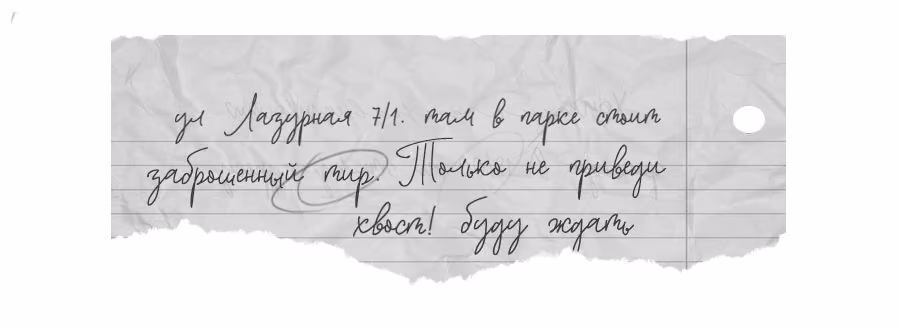 ул Лазурная 7/1. там в парке стоит
заброшенный тир. Только не приведи
хвост! буду ждать